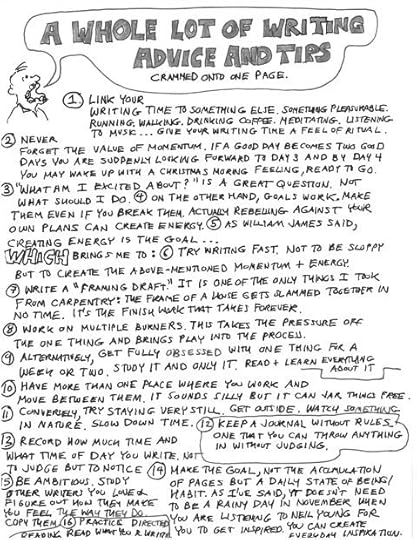 A WHOLE LOT OF WRITING
ADVICE AND TIPS
CRAMMED ONTO ONE PAGE.
1. LINK YOUR
WRITING TIME TO SOMETHING ELSE. SOMETHING PLEASURABLE.
RUNNING. WALKING. DRINKING COFFEE. MEDITATING. LISTENING
TO MUSIC... GIVE YOUR WRITING TIME A FEEL OF RITUAL.
2 NEVER
FORGET THE VALUE OF MOMENTUM. IF A GOOD DAY BECOMES TWO GOOD
DAYS YOU ARE SUDDENLY LOOKING FORWARD TO DAY 3 AND BY DAY 4
YOU MAY WAKE UP WITH A CHRISTMAS MORNING FEELING, READY TO GO.
3 "WHAT AM I EXCITED ABOUT?" IS A GREAT QUESTION. NOT
WHAT SHOULD I DO. 4 ON THE OTHER HAND, GOALS WORK. MAKE
THEM EVEN IF YOU BREAK THEM. ACTUALLY REBELLING AGAINST YOUR
OWN PLANS CAN CREATE ENERGY. 5 AS WILLIAM JAMES SAID,
CREATING ENERGY IS THE GOAL...
WHICH BRINGS ME TO: 6 TRY WRITING FAST. NOT TO BE SLOPPY
BUT TO CREATE THE ABOVE-MENTIONED MOMENTUM + ENERGY.
7 WRITE A "FRAMING DRAFT." IT IS ONE OF THE ONLY THINGS I TOOK
FROM CARPENTRY: THE FRAME OF A HOUSE GETS SLAMMED TOGETHER IN
NO TIME. IT'S THE FINISH WORK THAT TAKES FOREVER.
8 WORK ON MULTIPLE BURNERS. THIS TAKES THE PRESSURE OFF
THE ONE THING AND BRINGS PLAY INTO THE PROCESS.
9 ALTERNATIVELY, GET FULLY OBSESSED WITH ONE THING FOR A
WEEK OR TWO. STUDY IT AND ONLY IT. READ + LEARN EVERYTHING
ABOUT IT
10 HAVE MORE THAN ONE PLACE WHERE YOU WORK AND
MOVE BETWEEN THEM. IT SOUNDS SILLY BUT IT CAN JAR THINGS FREE.
11 CONVERSELY, TRY STAYING VERY STILL. GET OUTSIDE. WATCH SOMETHING
IN NATURE. SLOW DOWN TIME. 12 KEEP A JOURNAL WITHOUT RULES.
ONE THAT YOU CAN THROW ANYTHING
IN WITHOUT JUDGING.
13 RECORD HOW MUCH TIME AND
WHAT TIME OF DAY YOU WRITE. NOT
TO JUDGE BUT TO NOTICE
15 BE AMBITIOUS. STUDY
OTHER WRITERS YOU LOVE +
FIGURE OUT HOW THEY MAKE
YOU FEEL THE WAY THEY DO.
COPY THEM. 16 PRACTICE DIRECTED
READING. READ WHAT YOUR WRITING
14 MAKE THE GOAL, NOT THE ACCUMULATION
OF PAGES BUT A DAILY STATE OF BEING/
HABIT. AS I'VE SAID, IT DOESN'T NEED
TO BE A RAINY DAY IN NOVEMBER WHEN
YOU ARE LISTENING TO NEIL YOUNG FOR
YOU TO GET INSPIRED. YOU CAN CREATE
EVERYDAY INSPIRATION.